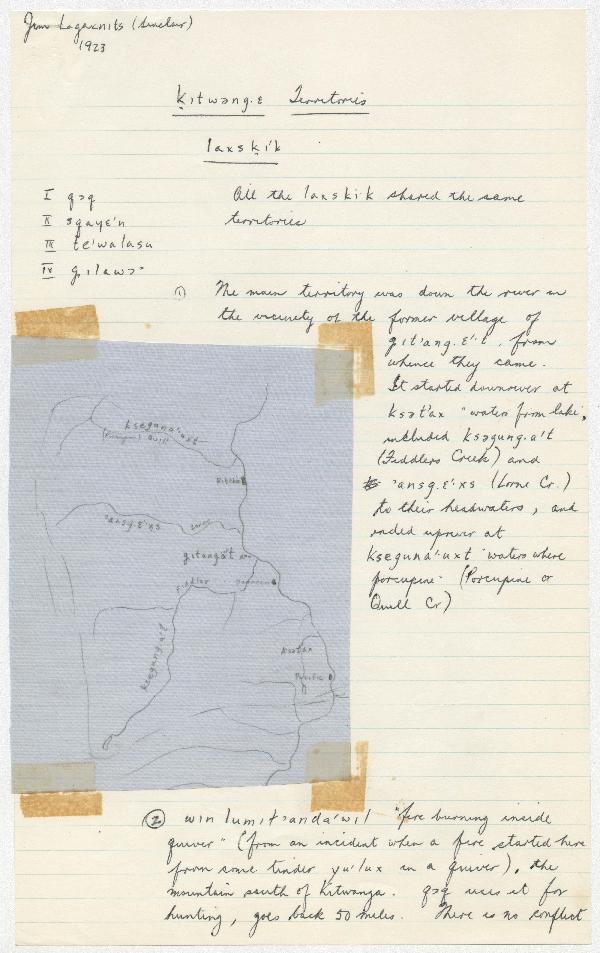 Jim Lagaxnits (Sinclair)
1923
ḳitwəng·ɛ Territories
laxsḳi'k
I gɔq
II sgaye'n
III te'walasu
IV gilawɔ'
All the laxski·k shared the same
territories
① The main territory was down the river in
the vicinity of the former village of
git'ang·ɛ'·t, from
whence they came.
It started downriver at
ksət'ax "waters from lake",
included ksəgung·a't
(Fiddlers Creek) and
'ansg·ɛ'·xs (Lorne Cr.)
to their headwaters, and
ended upriver at
kseguna'·uxt "waters where
porcupine" (Porcupine or
Quill Cr)
kseguna'·uxt
(Porcupine) Quill
Ritchie
'ansg·ɛ'xs
gitanga't
Fiddler
Dorreen
ksegung·a't
ksətax
Pacific
② win lumit'ɔanda'wil "fire burning inside
quiver" (from an incident when a fire started here
from some tinder yu'lux in a quiver), the
mountain south of Kitwanga. gɔq uses it for
hunting, goes back 50 miles. There is no conflict